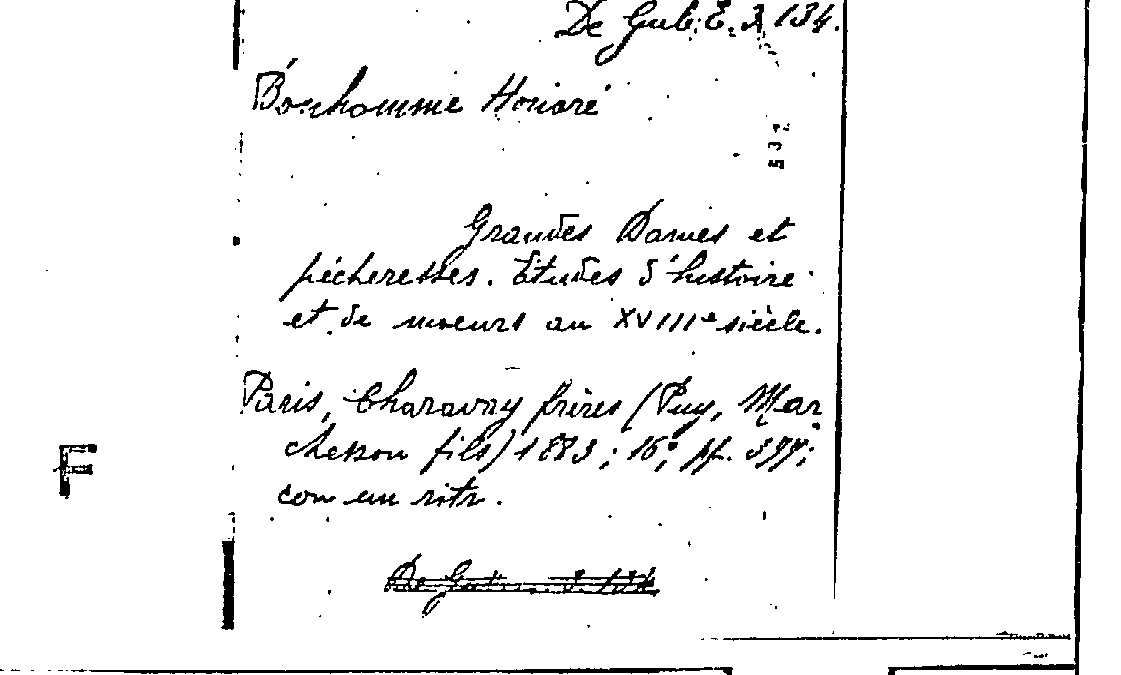 De Gub. E. 3. 134.
Bonhomme Honoré
532
Grandes Dames et
pécheresses. Études d'histoire
et de moeurs au XVIIIe siècle.
Paris, Charavay frères (Puy, Mar
chesson fils) 1883; 16°, pp. 399;
con un ritr.
F
De Gub. E. 3. 134.